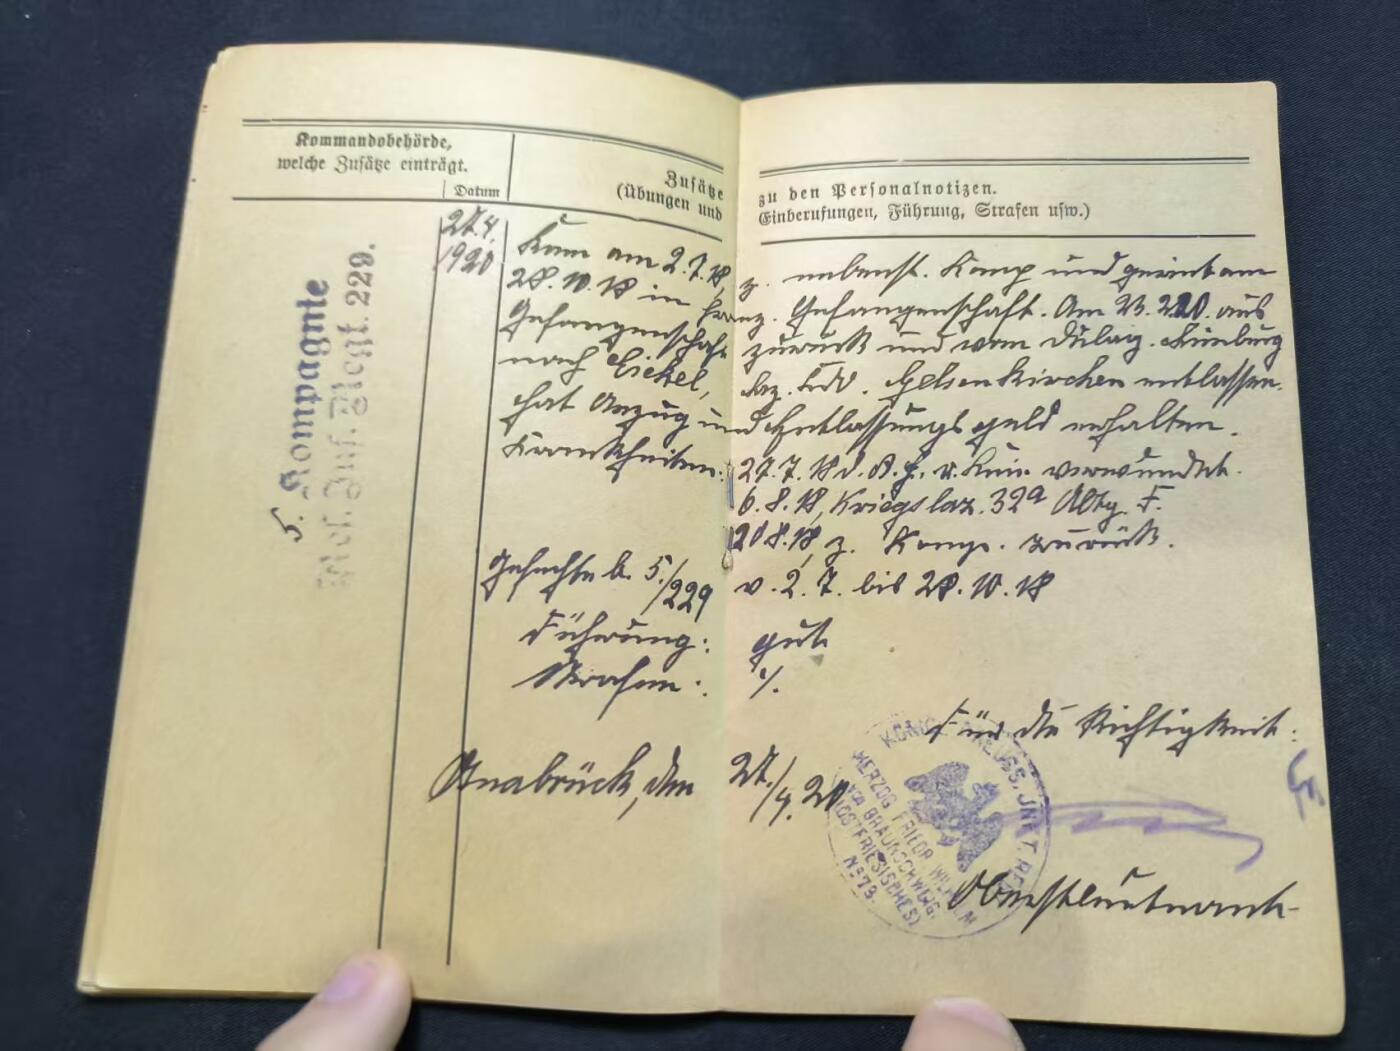 Kommandobehörde,
welche Zusätze einträgt.
Datum
Zusätze zu den Personalnotizen.
(Übungen und Einberufungen, Führung, Strafen usw.)
5. Kompagnie
Res. Inf. Regt. 229.
27.4.
1920
Kam am 2.7.18, z. nebenst. Komp und geriet am
28.10.18 in franz. Gefangenschaft. Am 23.2.20. aus
Gefangenschaft zurück und vom Dulag.
nach Eickel, Gelsenkirchen entlassen.
hat Anzug und Entlassungsgeld erhalten.
Krankheiten: 27.7.18 verwundet.
6.8.18, Kriegslaz. 32a Abtg. F.
20.8.18, z. Komp. zurück.
Gefechte b. 5./229 v. 2.7. bis 28.10.18
Führung: gut
Strafen: ./.
Für die Richtigkeit:
Osnabrück, den 27./4.20
KÖNIGL. PREUSS. INFT. REG.
HERZOG FRIEDR. WILHELM
VON BRAUNSCHWEIG.
(OSTFRIESISCHES)
No 78.
Oberstleutnant